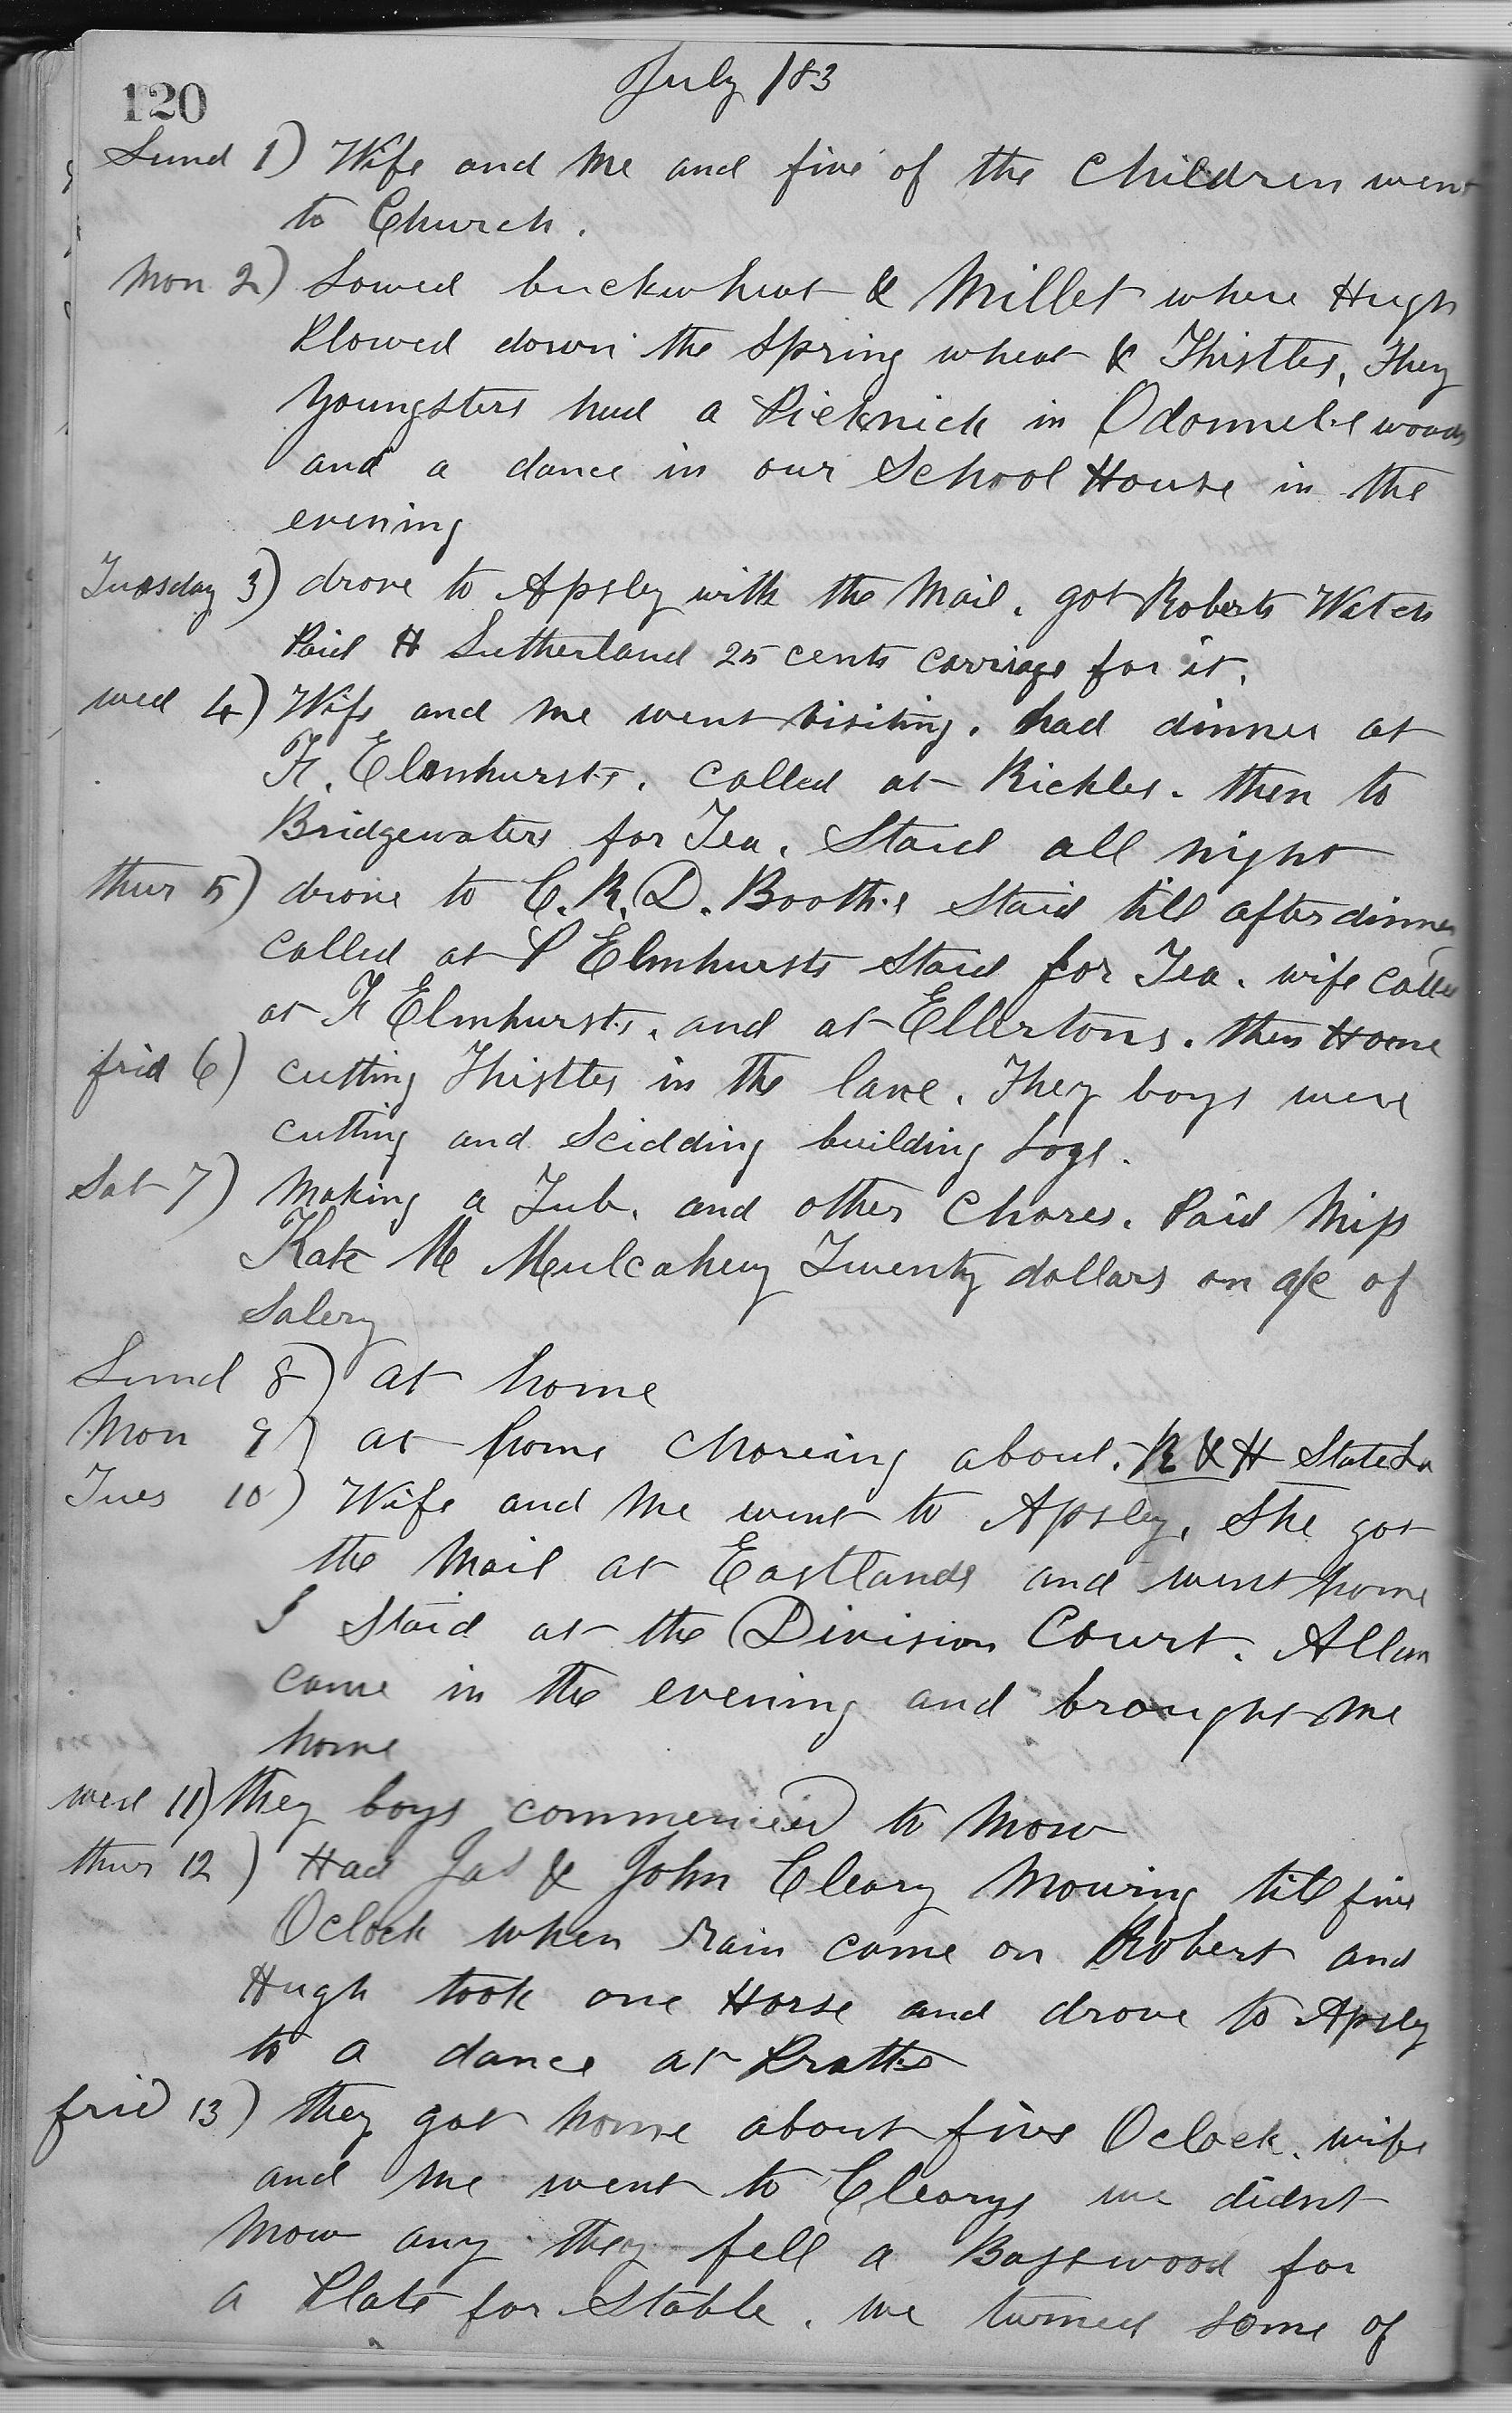 120
July /83
Sund 1) Wife and me and five of the Children went
to Church.
Mon 2) Sowed buckwheat & Millet where Hugh
Plowed down the Spring wheat & Thistles, They
Youngsters had a Picknick in Odonnel's woods
and a dance in our School House in the
evening
Tuesday 3) drove to Apsley with the Mail. got Roberts Watch
Paid H Sutherland 25 cents carriage for it.
wed 4) Wife and me went visiting. had dinner at
Fr. Elmhursts. called at Rickles. then to
Bridgewaters for Tea. Staid all night
thur 5) drove to C. R. D. Booth's Staid till after dinner
called at P Elmhursts Staid for Tea. wife called
at Fr Elmhursts. and at Ellertons. then Home
frid 6) cutting Thistles in the lane. They boys were
cutting and Scidding building Logs.
Sat 7) Making a Tub. and other Chores. Paid Miss
Kate Mc Mulcahey Twenty dollars on a/c of
Salery
Sund 8) at home
Mon 9) at home choreing about. R & H State La
Tues 10) Wife and me went to Apsley. She got
the Mail at Eastlands and went home
I Staid at the Division Court. Allan
came in the evening and brought me
home
wed 11) they boys commenced to Mow
thur 12) Had Jas & John Cleary Mowing till five
Oclock when rain come on Robert and
Hugh took one Horse and drove to Apsley
to a dance at Pratts
frid 13) they got home about five Oclock. wife
and me went to Clearys we didnt
Mow any they fell a Basswood for
a Plate for Stable. we turned some of